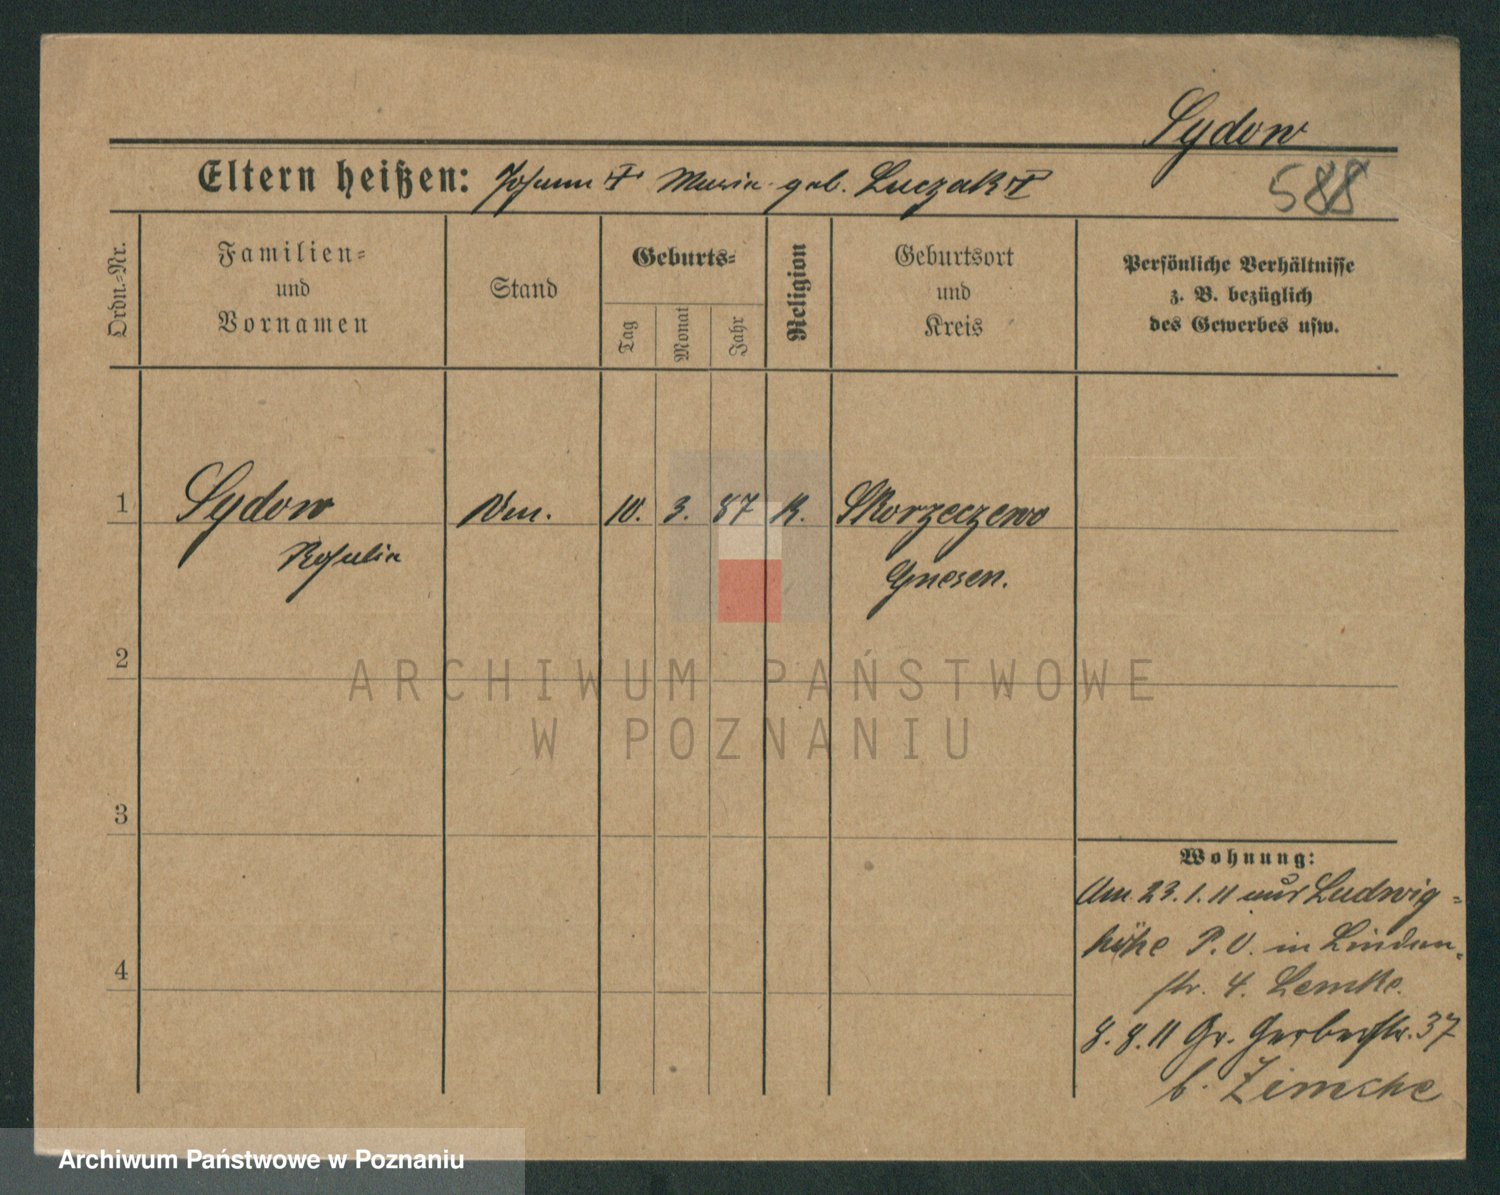 Sydow
Eltern heißen: Johann † Maria geb. Luczak †
588
Ordn.=Nr.
Familien=
und
Vornamen
Stand
Geburts=
Tag
Monat
Jahr
Religion
Geburtsort
und
Kreis
Persönliche Verhältnisse
z. B. bezüglich
des Gewerbes usw.
1
Sydow
Rosalia
10. 3. 87 K.
Skorzeczewo
Gnesen.
2
ARCHIWUM PAŃSTWOWE
W POZNANIU
3
Wohnung:
Am 23.1.11 aus Ludwig=
höhe P.O. in Linden-
str. 4. Lemke.
8.8.11 Gr. Gerberstr. 37
b.
4
Archiwum Państwowe w Poznaniu